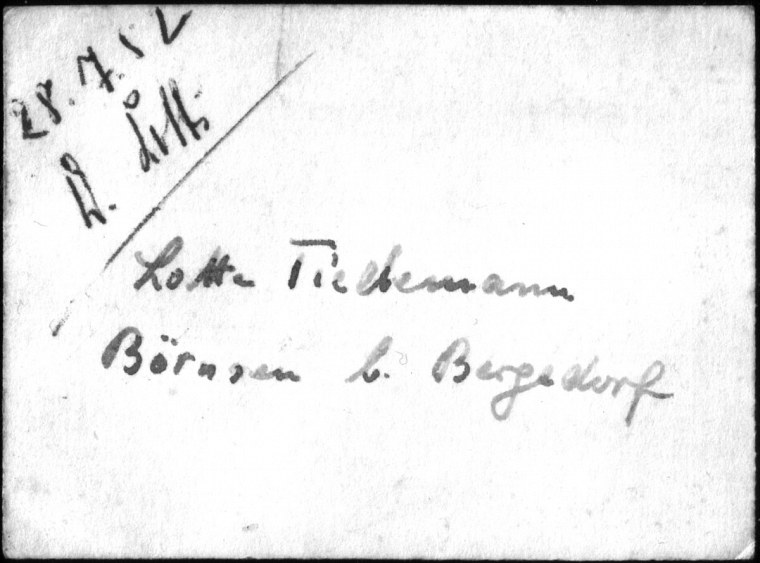 28.7.52
Lotte Tiedemann
Börnsen b. Bergedorf